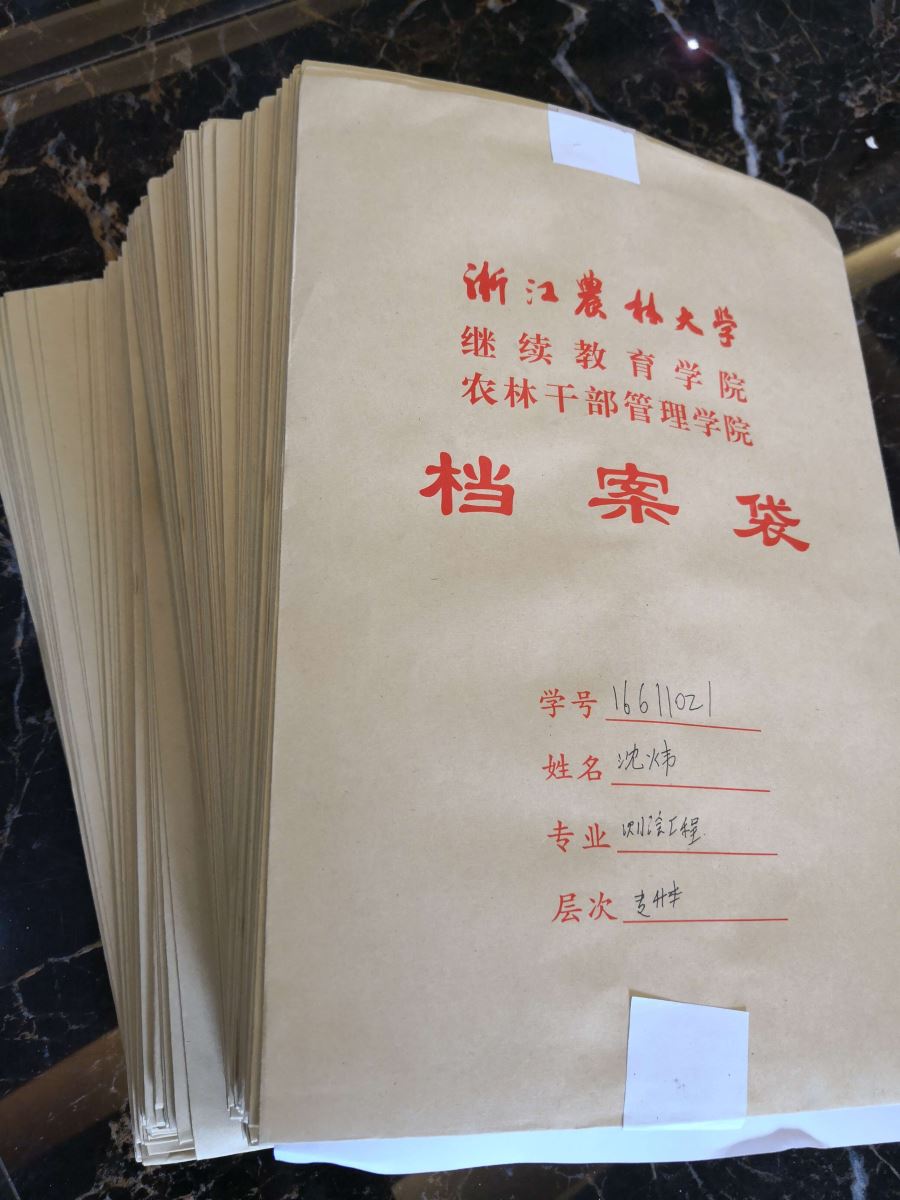 浙江農林大学
继续教育学院
农林干部管理学院
档案袋
学号 16611021
姓名 沈炜
专业 测绘工程
层次 专升本